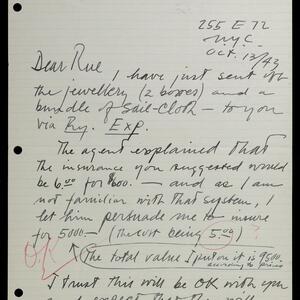 255 E 72
N.Y.C.
Oct. 13/43
Dear Rue
I have just sent off
the jewellery (2 boxes) and a
bundle of sail-cloth – to you
via Ry. Exp.
The agent explained that
the insurance you suggested would
be 6.00 for $600. – and as I am
not familiar with that system, I
let him persuade me to insure
for 5000– (the cost being 5.00) ?
OK
(The total value I put on it is 9500.
according to prices
I trust this will be OK with you
and expect that the